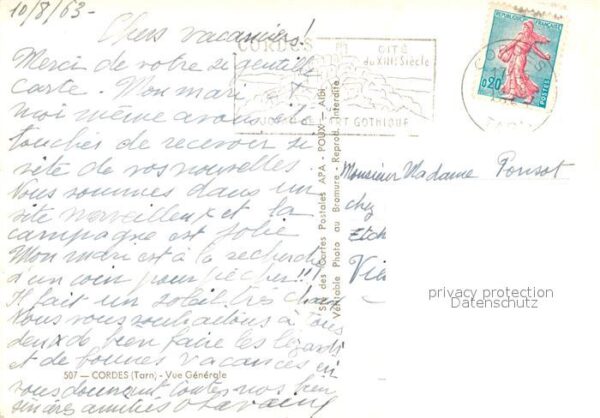 10/8/63-
Chers vacanciers!
Merci de votre si gentille
carte. Mon mari et
moi même avons été
touchés de recevoir si
vite de vos nouvelles.
Nous sommes dans un
site merveilleux et la
campagne est jolie
Mon mari est à la recherche
d'un coin pour pêcher!!!
Il fait un soleil très chaud
Nous vous souhaitons à tous
deux de bien faire les lézards
et de bonnes vacances en
vous donnant toutes nos bien
sincères amitiés
507 — CORDES (Tarn) - Vue Générale
CORDES
CITÉ
du XIIIe Siècle
GOTHIQUE
Sté des Cartes Postales APA - POUX - ALBI
Véritable Photo au Bromure - Reprod. Interdite
REPUBLIQUE FRANÇAISE
0,20
POSTES
Monsieur Madame Ponsot
chez
Etch
privacy protection
Datenschutz